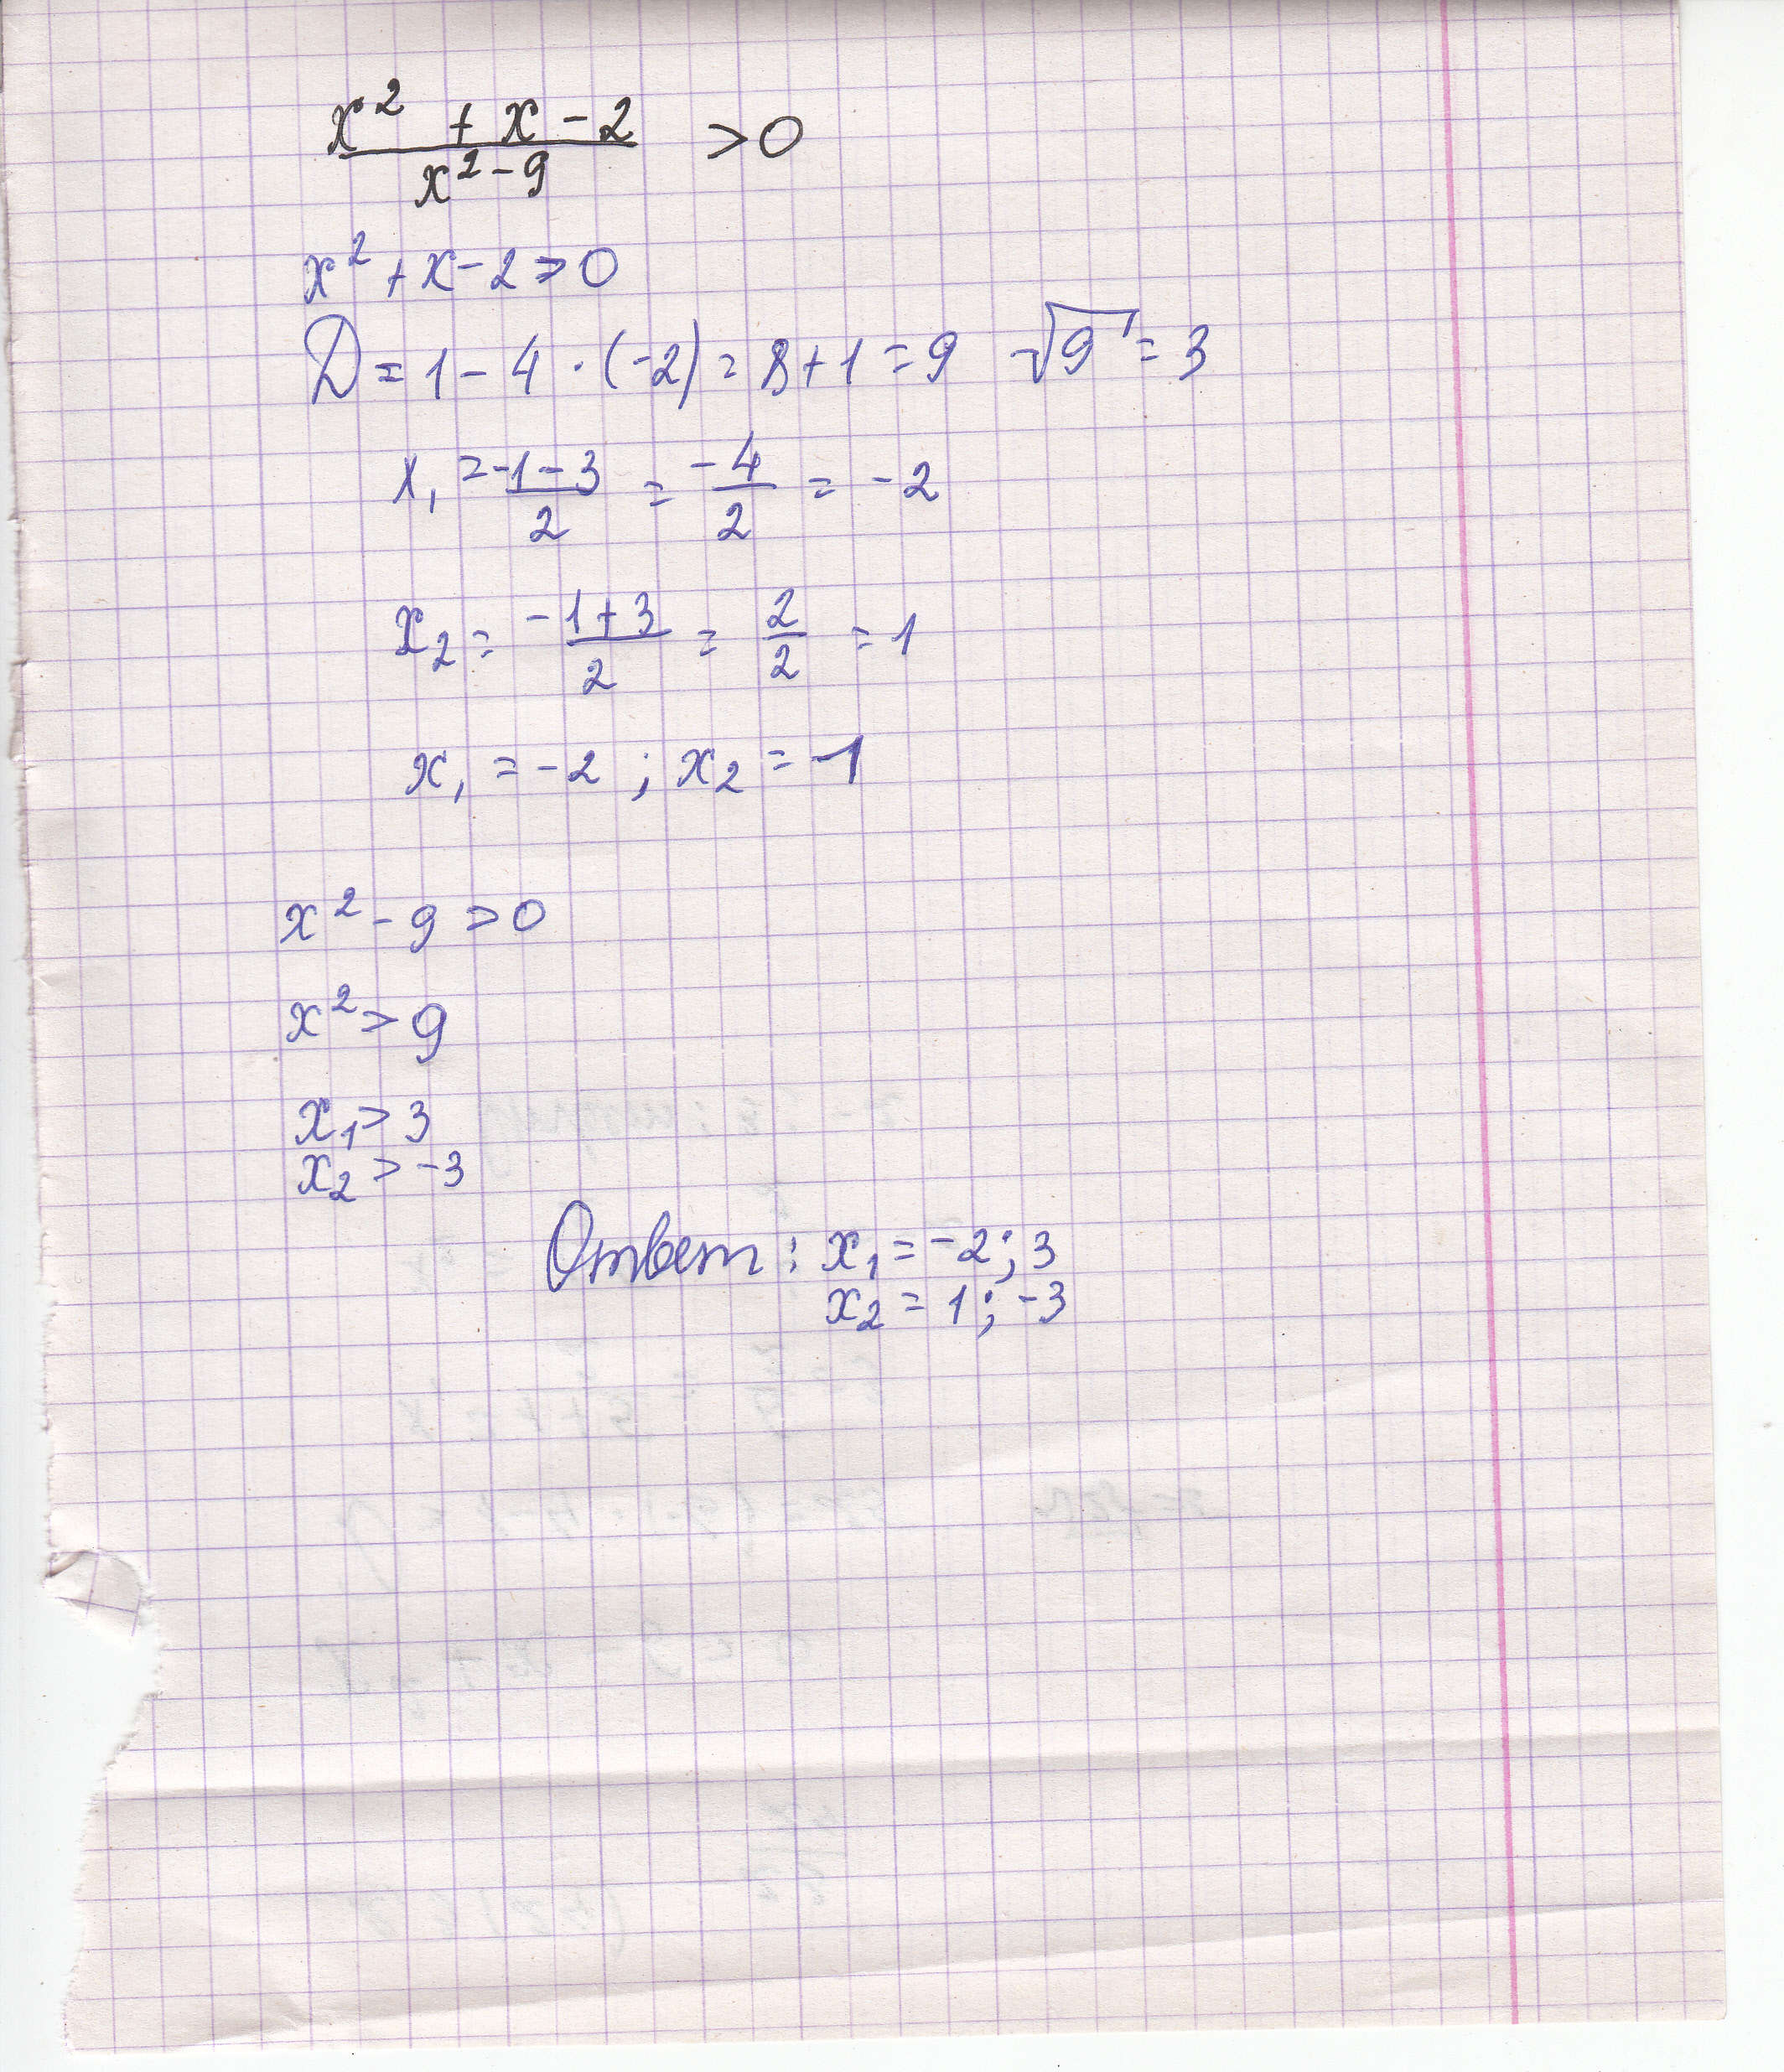 x² + x - 2 / x² - 9 > 0
x² + x - 2 > 0
D = 1 - 4 · (-2) = 8 + 1 = 9 √9 = 3
x₁ = -1 - 3 / 2 = -4 / 2 = -2
x₂ = -1 + 3 / 2 = 2 / 2 = 1
x₁ = -2 ; x₂ = -1
x² - 9 > 0
x² > 9
x₁ > 3
x₂ > -3
Ответ: x₁ = -2; 3
x₂ = 1; -3